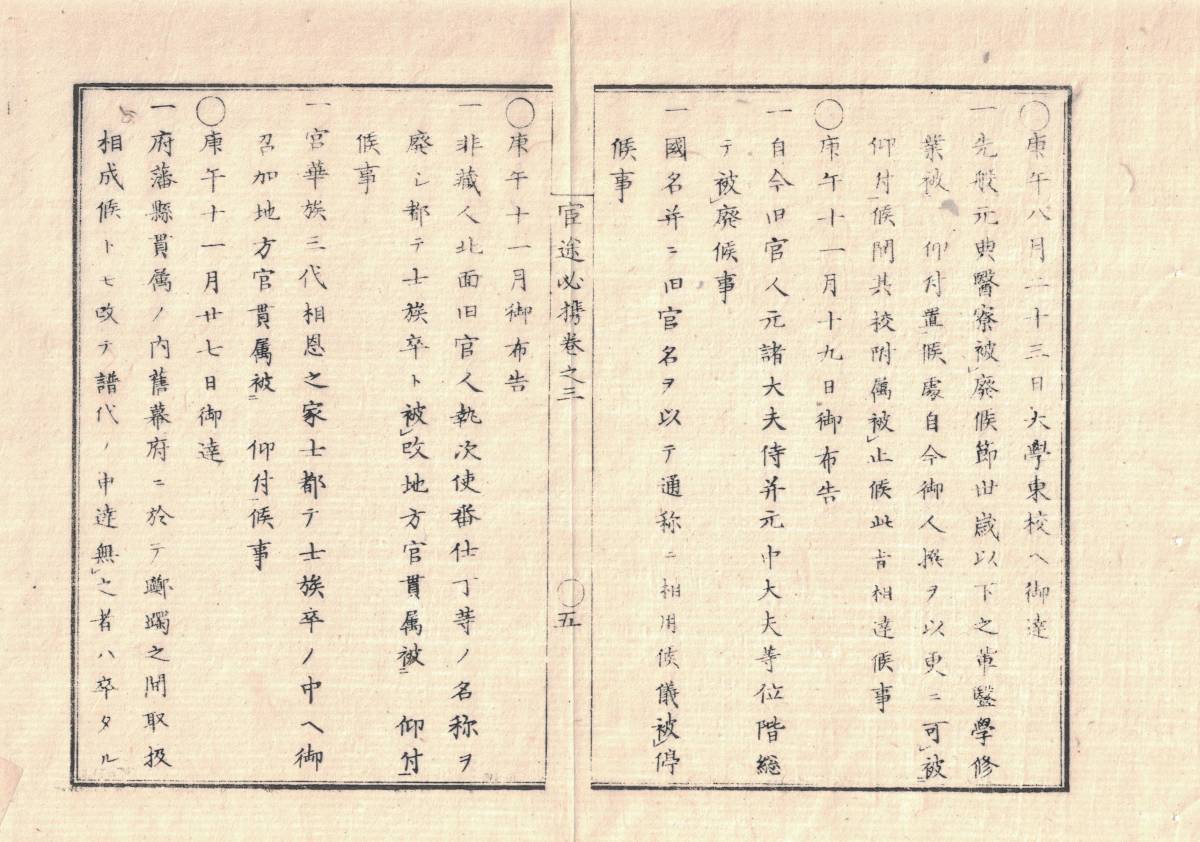 ◯庚午八月二十三日大學東校ヘ御達
一先般元典醫寮被廢候節廿歳以下之輩醫學修
業被 仰付置候處自今御人撰ヲ以更ニ可被
仰付候間其校附属被止候此旨相達候事
◯庚午十一月十九日御布告
一自今旧官人元諸大夫侍并元中大夫等位階総
テ被廢候事
一國名并ニ旧官名ヲ以テ通称ニ相用候儀被停
候事
宦途必携巻之三 ◯五
◯庚午十一月御布告
一非蔵人北面旧官人執次使番仕丁等ノ名称ヲ
廢シ都テ士族卒ト被改地方官貫属被 仰付
候事
一宮華族三代相恩之家士都テ士族卒ノ中ヘ御
召加地方官貫属被 仰付候事
◯庚午十一月廿七日御達
一府藩縣貫属ノ内舊幕府ニ於テ躑躅之間取扱
相成候トモ改テ譜代ノ申達無之者ハ卒タル